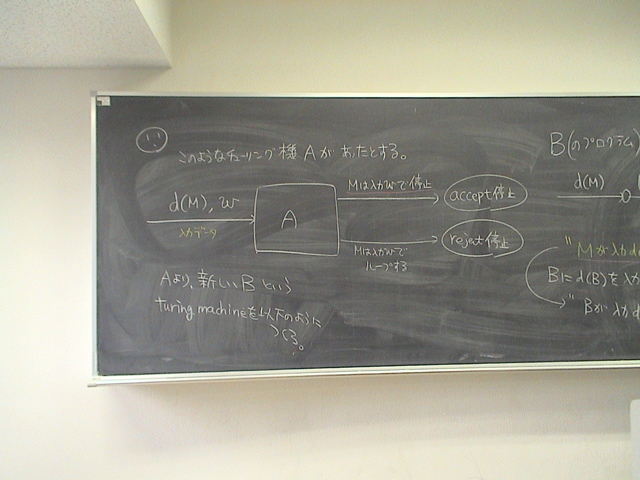 このようなチューリング機Aがあったとする。
d(M), w
入力データ
A
Mは入力wで停止
accept停止
Mは入力wで
ループする
reject停止
Aより、新しいBという
turing machineを以下のように
つくる。
B(のプログラム
d(M)
"Mが入力d
Bに d(B)を入力
"Bが入力d